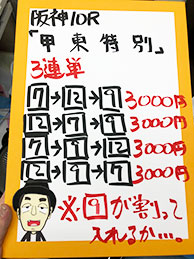 阪神10R
「甲東特別」
3連単
7→12→9 3000円
12→7→9 3000円
7→9→12 3000円
12→9→7 3000円
※9が割って
入れるか…。